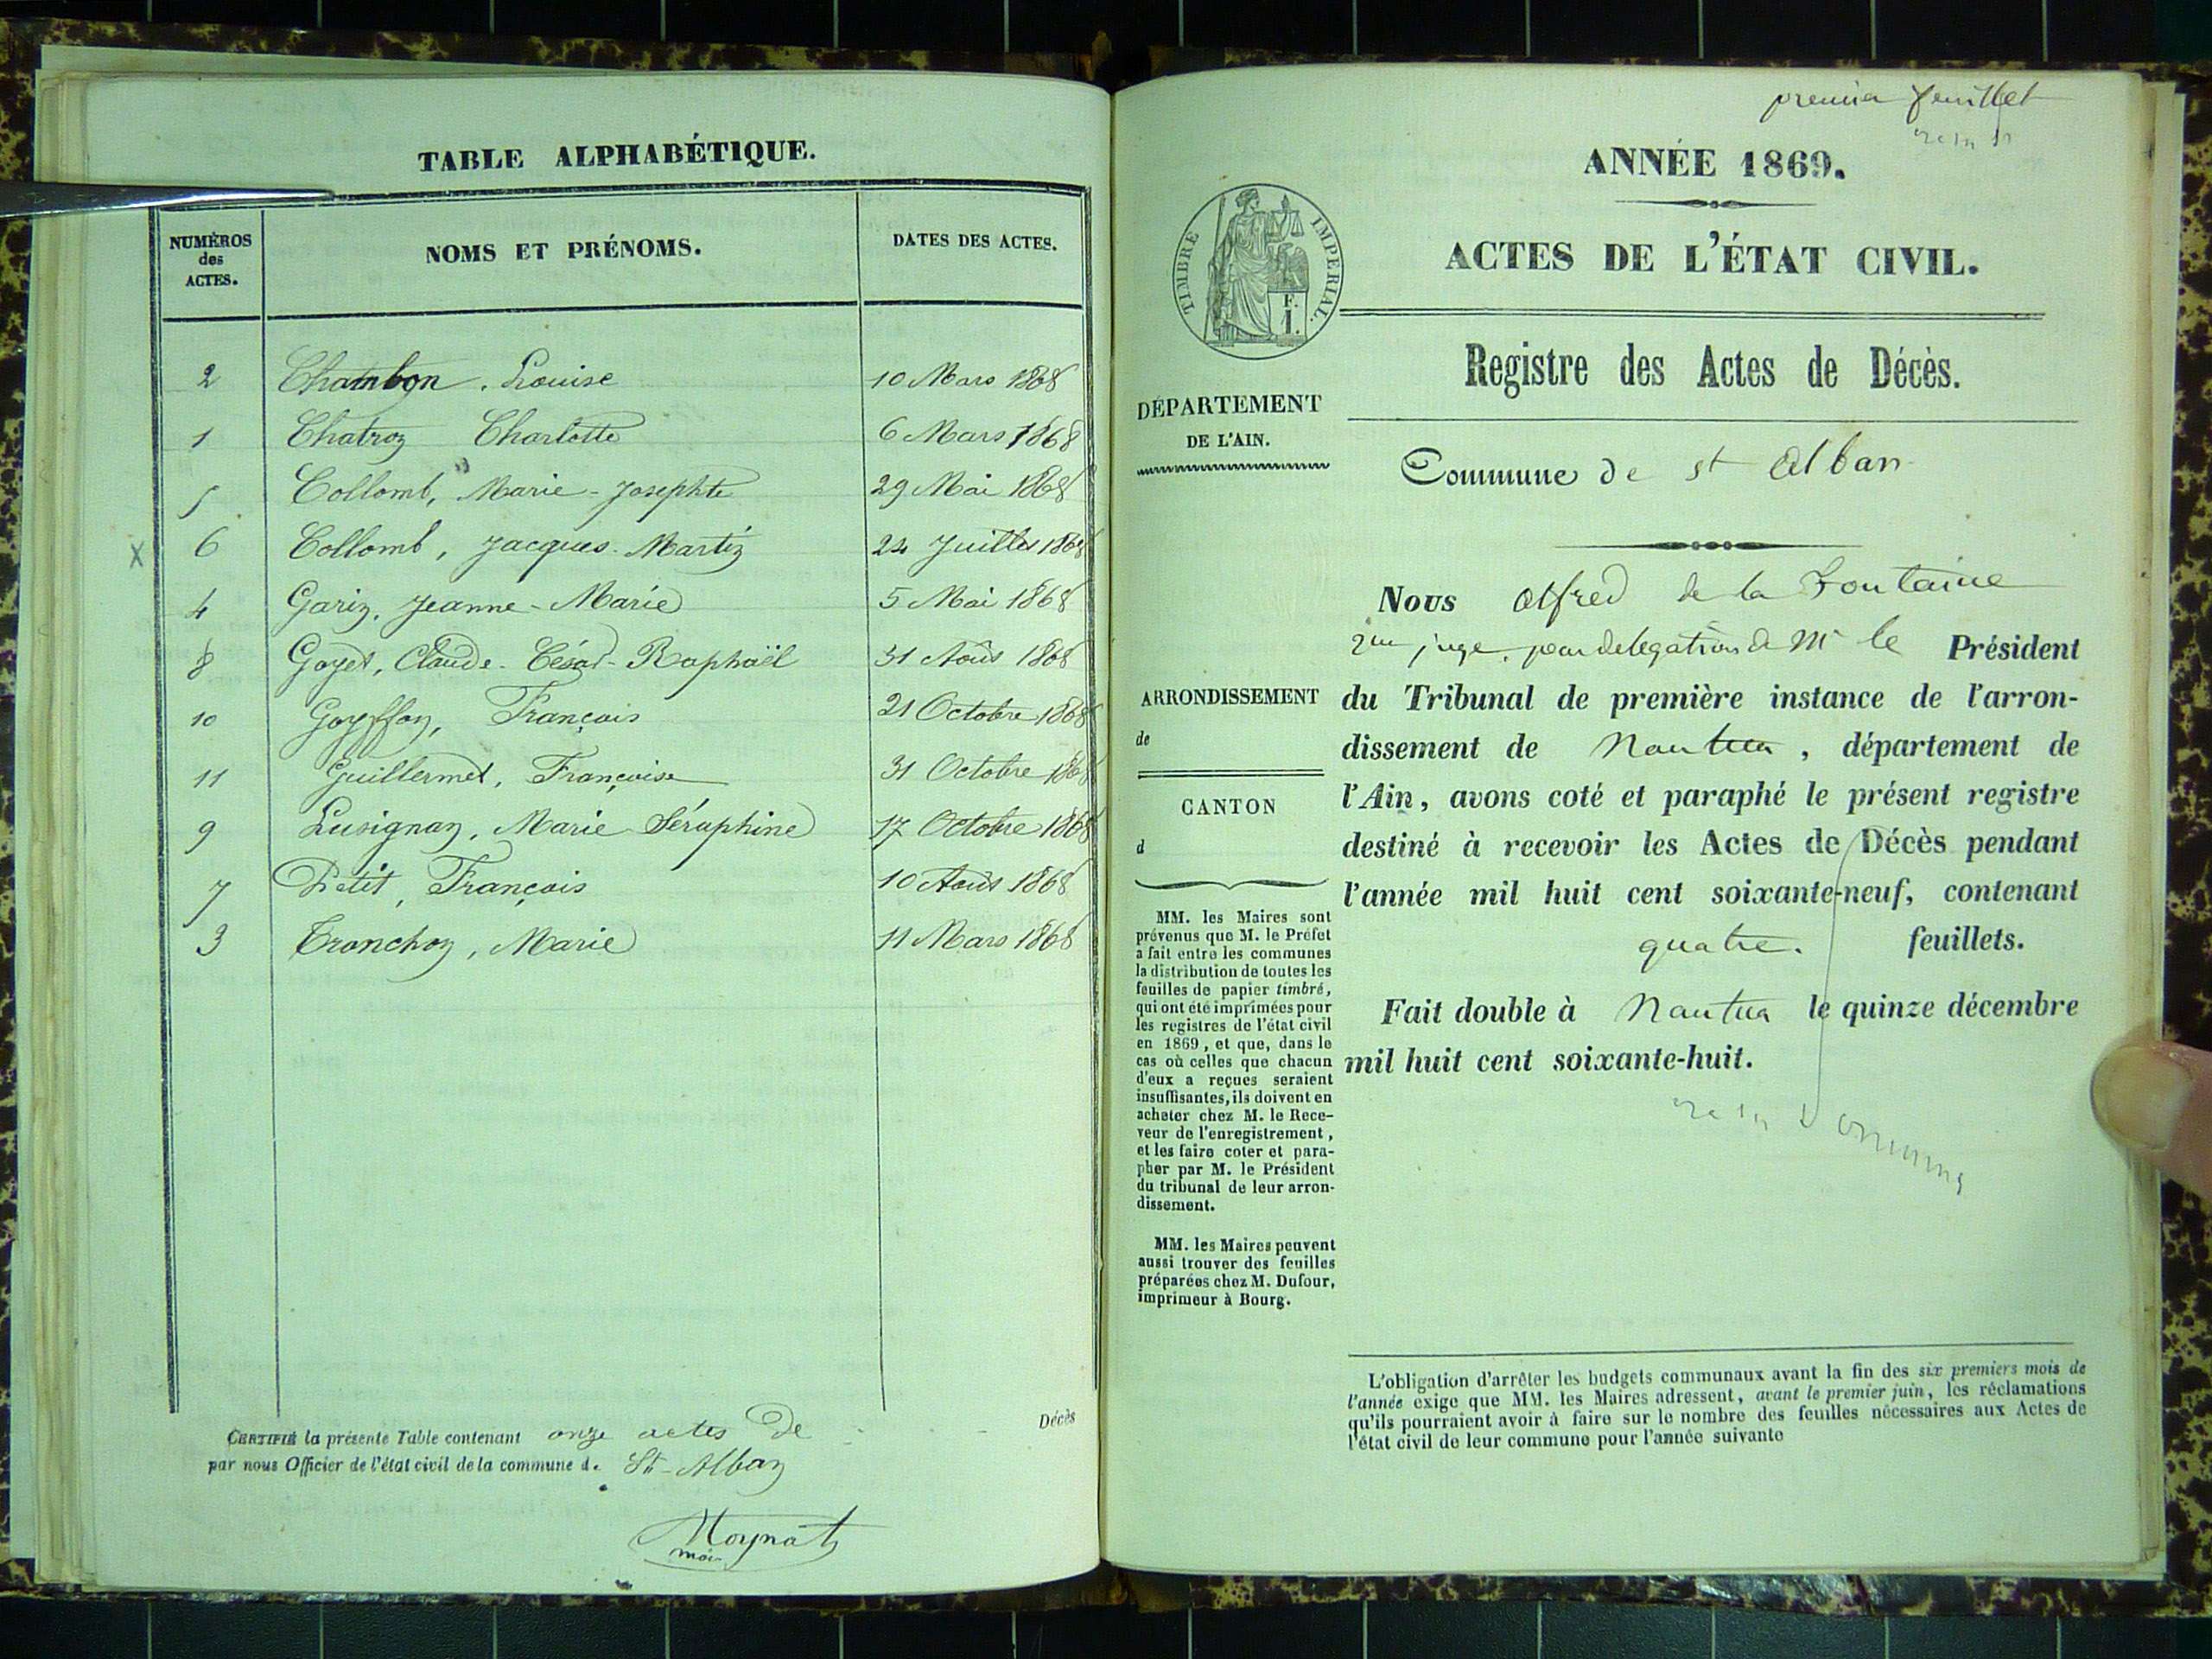 TABLE ALPHABÉTIQUE.
NUMÉROS des ACTES. NOMS ET PRÉNOMS. DATES DES ACTES.
2 Chambon, Louise 10 Mars 1868
1 Chatroz Charlotte 6 Mars 1868
5 Collomb, Marie-Josephte 29 Mai 1868
6 Collomb, Jacques-Martin 24 Juillet 1868
4 Gariz, Jeanne-Marie 5 Mai 1868
8 Goyet, Claude-César-Raphaël 31 Août 1868
10 Goyffon, François 21 Octobre 1868
11 Guillermet, Françoise 31 Octobre 1868
9 Lusignan, Marie Séraphine 17 Octobre 1868
7 Petit, François 10 Août 1868
3 Tronchon, Marie 11 Mars 1868
CERTIFIÉ la présente Table contenant onze actes de Décès
par nous Officier de l'état civil de la commune d. St-Alban
Moynat
maire
premier feuillet
ANNÉE 1869.
ACTES DE L'ÉTAT CIVIL.
TIMBRE IMPERIAL.
F.
1.
Registre des Actes de Décès.
DÉPARTEMENT
DE L'AIN.
Commune de st Alban
ARRONDISSEMENT
de
CANTON
d
MM. les Maires sont
prévenus que M. le Préfet
a fait entre les communes
la distribution de toutes les
feuilles de papier timbré,
qui ont été imprimées pour
les registres de l'état civil
en 1869, et que, dans le
cas où celles que chacun
d'eux a reçues seraient
insuffisantes, ils doivent en
acheter chez M. le Rece-
veur de l'enregistrement,
et les faire coter et para-
pher par M. le Président
du tribunal de leur arron-
dissement.
MM. les Maires peuvent
aussi trouver des feuilles
préparées chez M. Dufour,
imprimeur à Bourg.
Nous Alfred de la Fontaine
juge, par delegation de Mr le Président
du Tribunal de première instance de l'arron-
dissement de Nantua, département de
l'Ain, avons coté et paraphé le présent registre
destiné à recevoir les Actes de Décès pendant
l'année mil huit cent soixante-neuf, contenant
quatre. feuillets.
Fait double à Nantua le quinze décembre
mil huit cent soixante-huit.
L'obligation d'arrêter les budgets communaux avant la fin des six premiers mois de
l'année exige que MM. les Maires adressent, avant le premier juin, les réclamations
qu'ils pourraient avoir à faire sur le nombre des feuilles nécessaires aux Actes de
l'état civil de leur commune pour l'année suivante